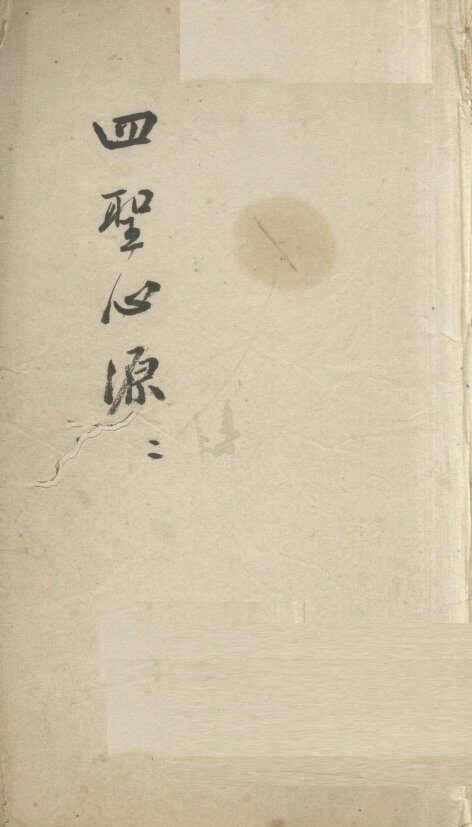 四聖心源
二